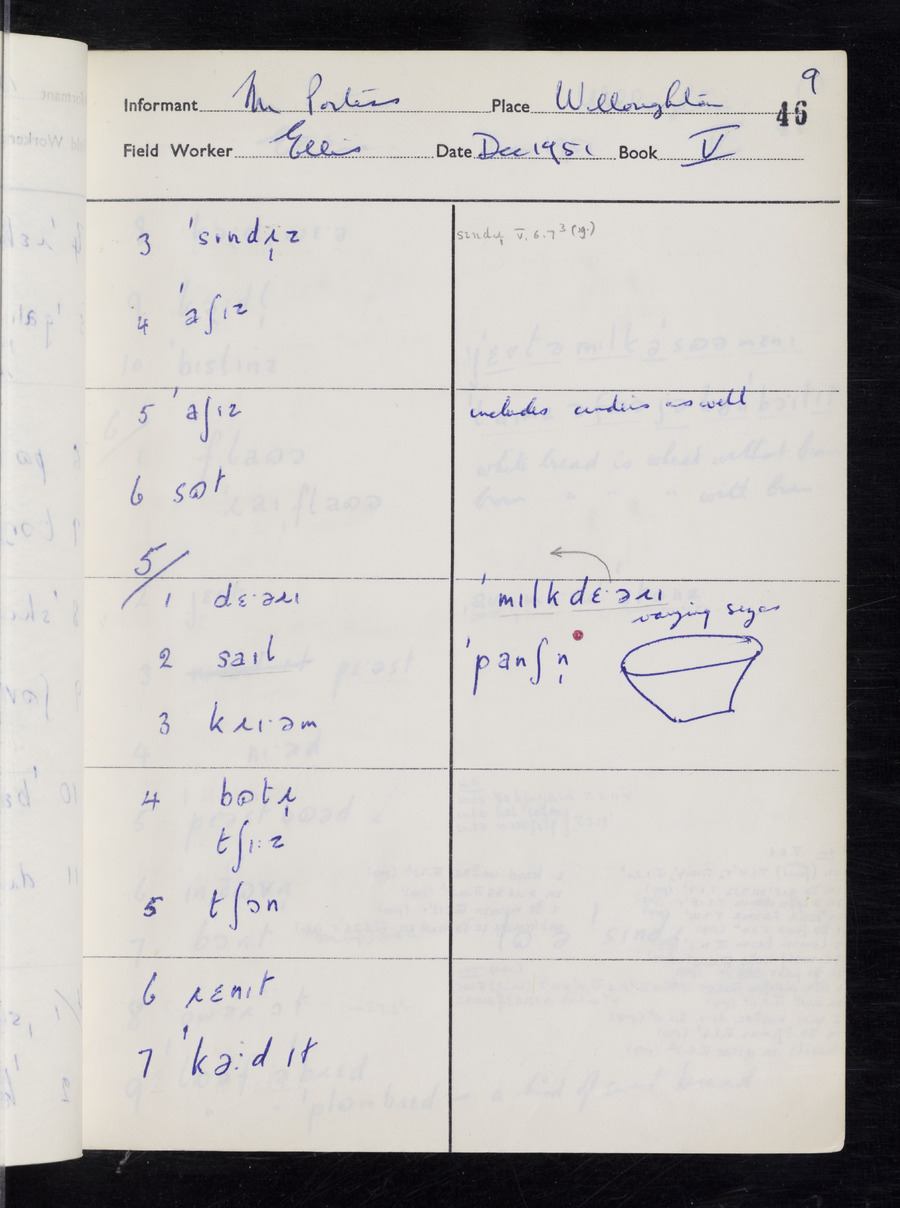 9
Informant Mr Place Willoughton 46
Field Worker Ellis Date Dec 1951 Book V
3 ˈsɪndɹ̩z V.6.7³ (sg.)
4 ˈaʃɪz
5 ˈaʃɪz includes cinders as well
6 sɵt
5/
1 dɛ·əɹɪ ˈmɪlkdɛ·əɹɪ
varying sizes
2 saɪl ˈpanʃn̩
3 kɹɪ·əm
4 bɵtɹ̩
tʃɪ:z
5 tʃən
6 ɹɛnɪt
7 ˈkə:dɪt